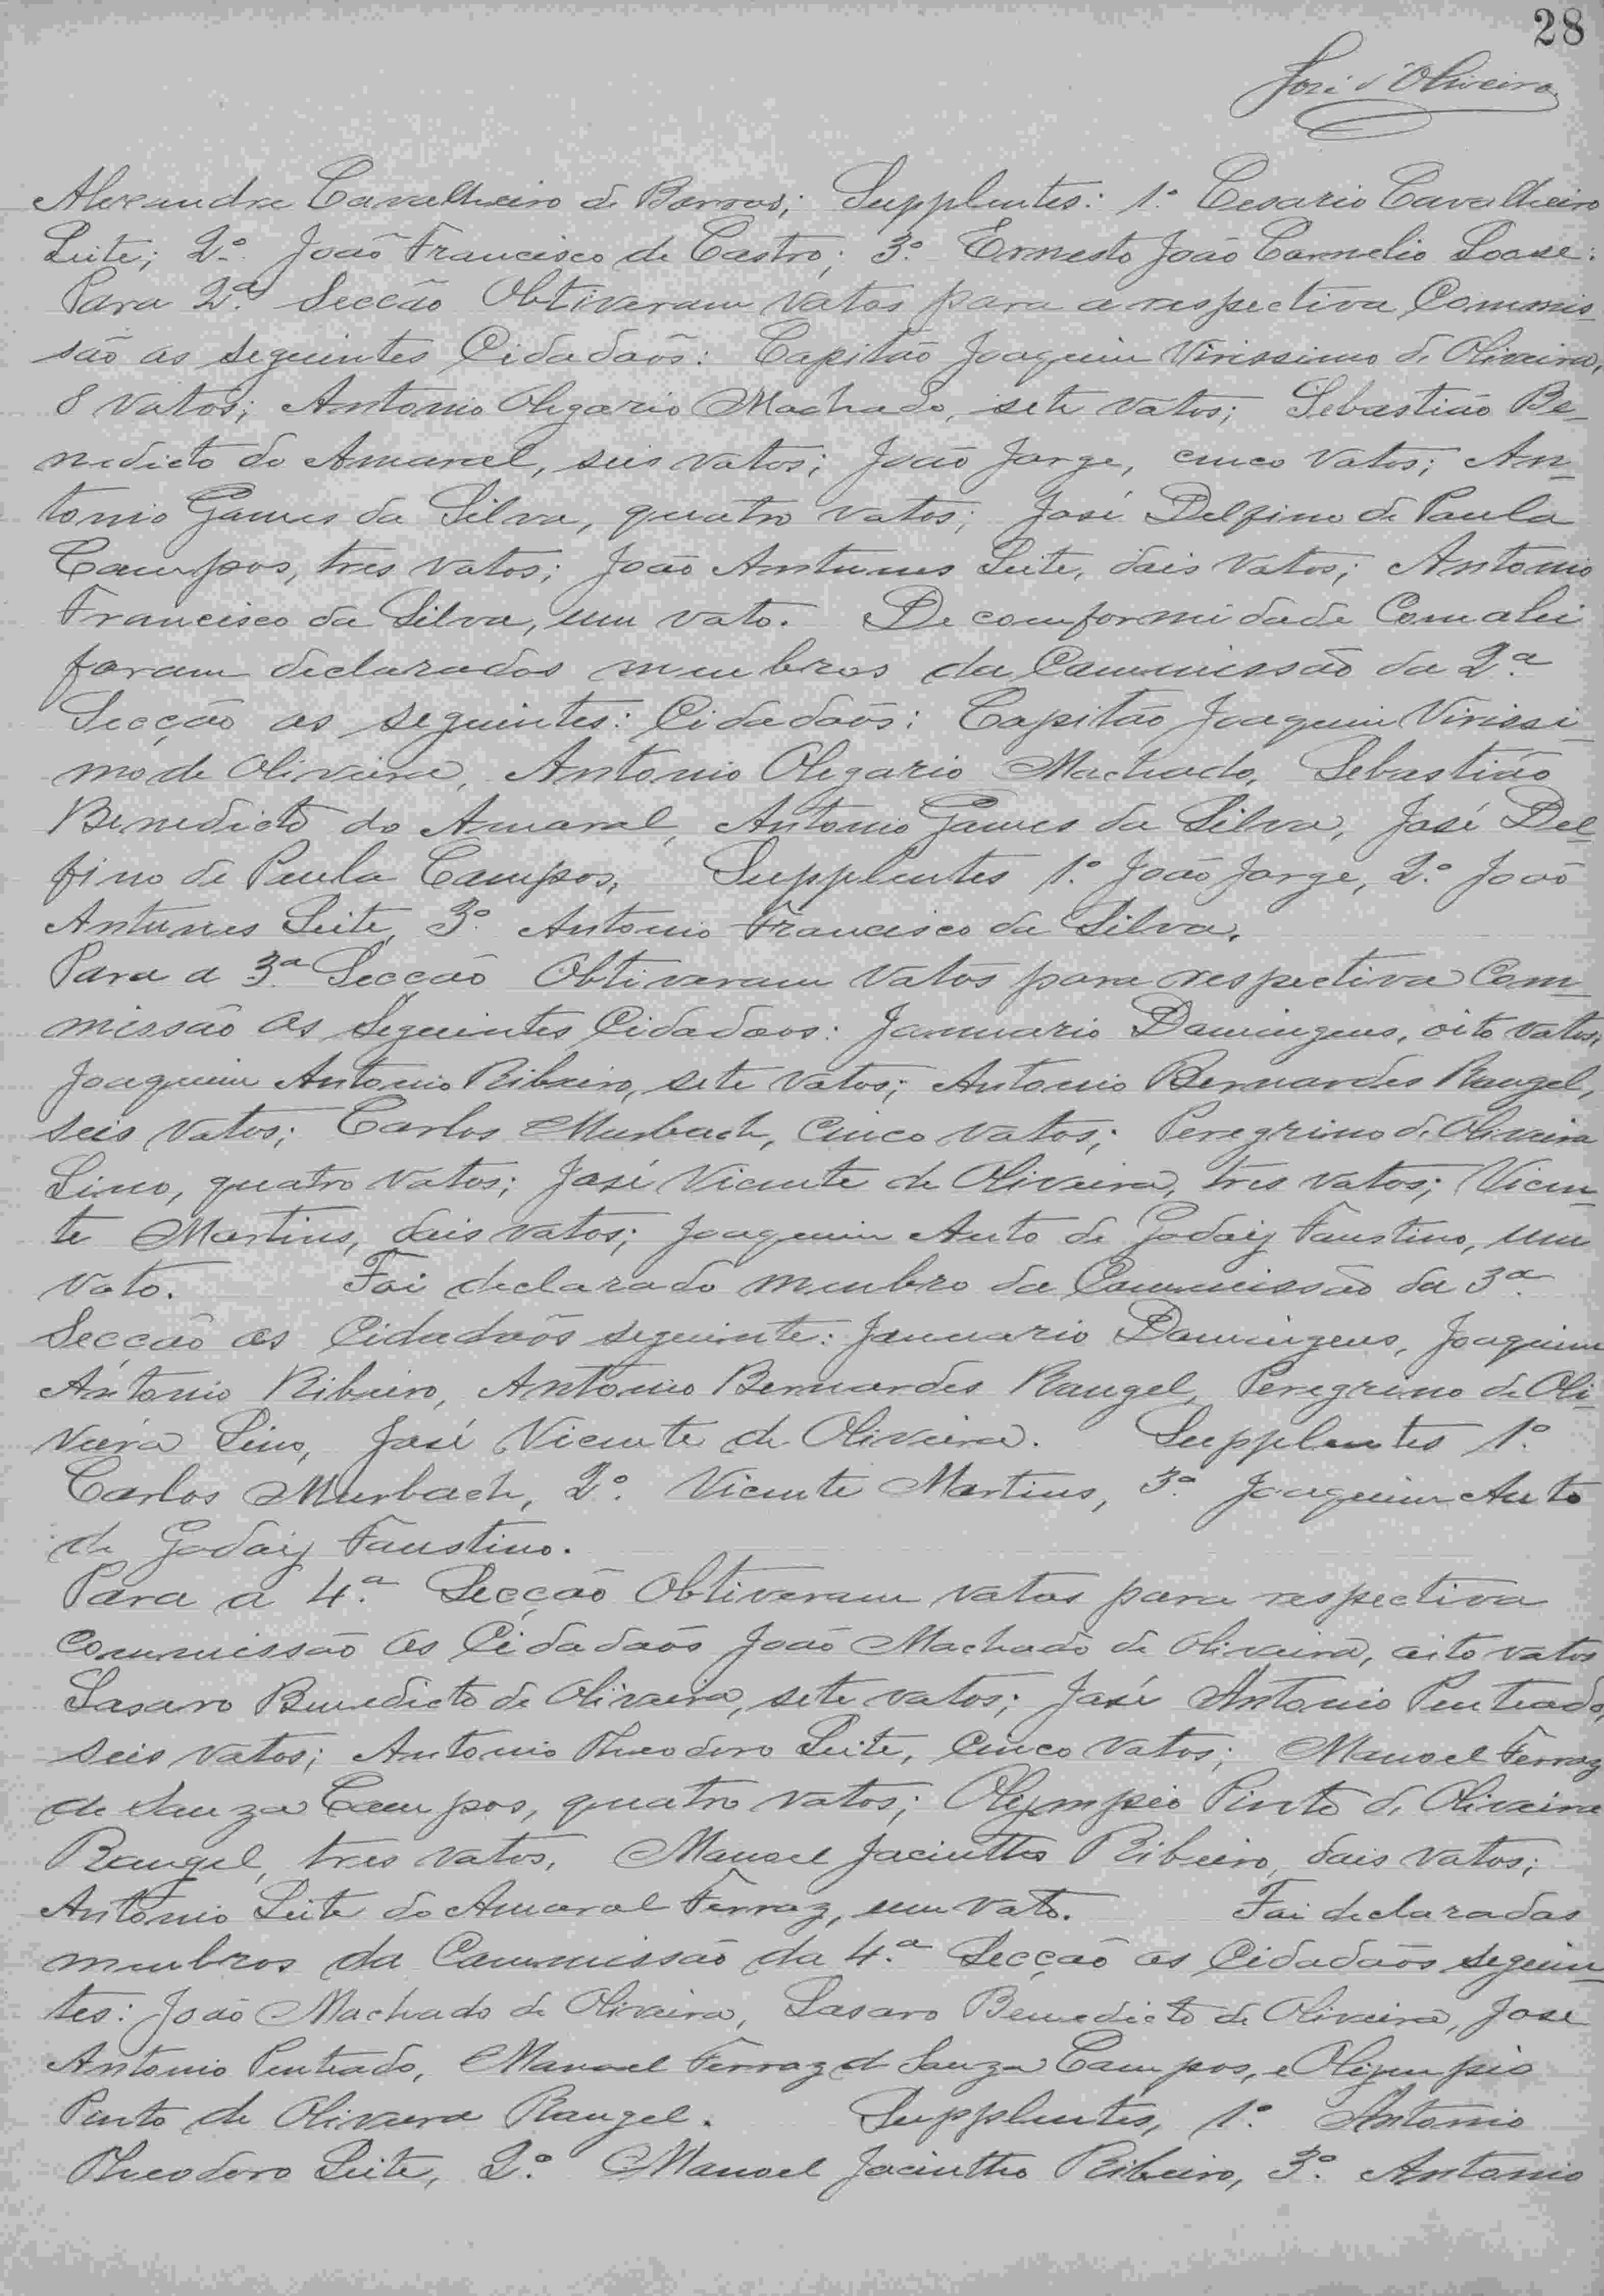 28
José d'Oliveira
Alexandre Cavalheiro de Barros; Supplentes: 1º Cesario Cavalheiro
Leite; 2º João Francisco de Castro; 3º Ernesto João Carnelio Loose:
Para 2ª Secção Obtiveram votos para a respectiva Commis-
são os seguintes Cidadaõs: Capitão Joaquim Virissimo de Oliveira,
8 votos; Antonio Olegario Machado, sete votos; Sebastião Be-
nedicto do Amaral, seis votos; João Jorge, cinco votos; An-
tonio Gomes da Silva, quatro votos; José Delfino de Paula
Campos, tres votos; João Antunes Leite, dois votos; Antonio
Francisco da Silva, um voto. De comformidade Comalei
foram declarados membros da Commissão da 2ª
Secção os seguintes: Cidadaõs: Capitão Joaquim Virissi-
mo de Oliveira, Antonio Olegario Machado, Sebastião
Benedicto do Amaral, Antonio Gomes da Silva, José Del-
fino de Paula Campos, Supplentes 1º João Jorge, 2º João
Antunes Leite, 3º Antonio Francisco da Silva.
Para a 3ª Secção Obtiveram votos para respectiva Com-
missão os seguintes Cidadaos: Januario Domingues, oito votos,
Joaquim Antonio Ribeiro, sete votos; Antonio Bernardes Rangel,
seis votos; Carlos Murbach, cinco votos; Peregrino de Oliveira
Lino, quatro votos; José Vicente de Oliveira, tres votos; Vicen-
te Martins, dois votos; Joaquim Anto de Godoiy Faustino, um
voto. Foi declarado membro da Commissão da 3ª
Secção os Cidadaõs seguinte: Januario Domingues, Joaquim
Antonio Ribeiro, Antonio Bernardes Rangel, Peregrino de Oli-
veira Lino, José Vicente de Oliveira. Supplentes 1º
Carlos Murbach, 2º. Vicente Martins, 3º Joaquim Anto
de Godoiy Faustino.
Para a 4ª Secção Obtiveram votos para respectiva
Commissão os Cidadaõs João Machado de Oliveira, oito votos
Lasaro Benedicto de Oliveira, sete votos; José Antonio Penteado,
seis votos; Antonio Theodoro Leite, cinco votos; Manoel Ferraz
de Souza Campos, quatro votos; Olympio Pinto de Oliveira
Rangel, tres votos, Manoel Jacintho Ribeiro, dois votos;
Antonio Leite do Amaral Ferraz, um voto. Foi declarados
membros da Commissão da 4ª Secção os Cidadaõs seguin-
tes: João Machado de Oliveira, Lasaro Benedicto de Oliveira, José
Antonio Penteado, Manoel Ferraz d Souza Campos, e Olympio
Pinto de Oliveira Rangel. Supplentes, 1º Antonio
Theodoro Leite, 2º Manoel Jacintho Ribeiro, 3º Antonio